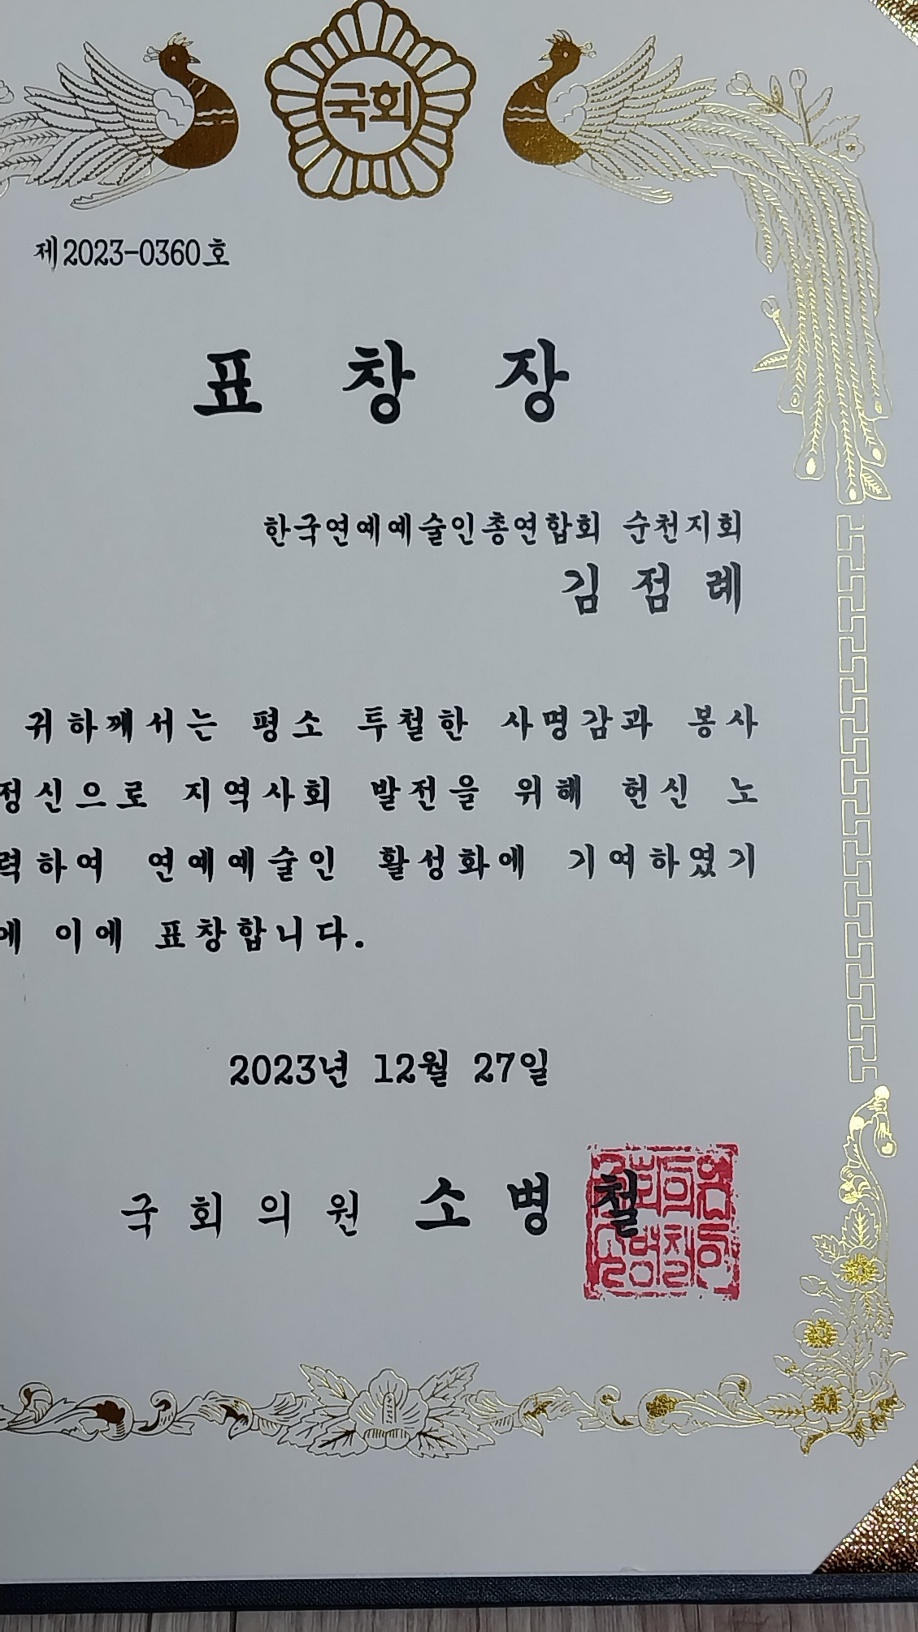 국회
제2023-0360호
표 창 장
한국연예예술인총연합회 순천지회
김 점 례
귀하께서는 평소 투철한 사명감과 봉사
정신으로 지역사회 발전을 위해 헌신 노
력하여 연예예술인 활성화에 기여하였기
에 이에 표창합니다.
2023년 12월 27일
국 회 의 원 소 병 철